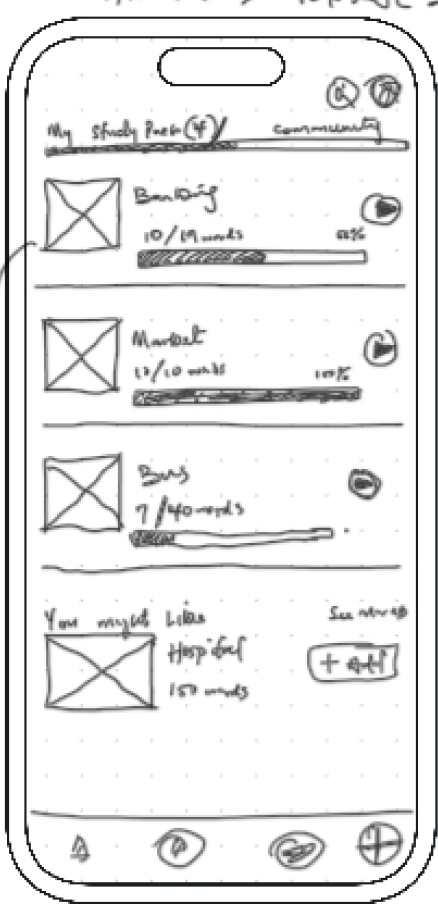 My Study Pack (4)
Community
Banking
10/19 words
Market
100%
Bus
7/40 words
You might Like
Hospital
150 words
+ add